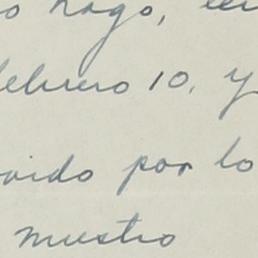 hago,
febrero 10. y
vido por lo
nuestro